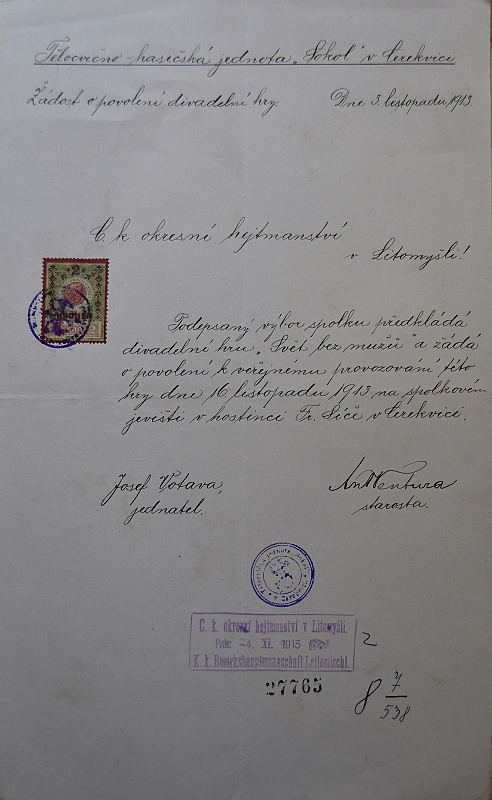 Tělocvično-hasičská jednota „Sokol" v Cerekvici
Žádost o povolení divadelní hry.
Dne 3. listopadu 1913.
C. k. okresní hejtmanství
v Litomyšli!
2
Podepsaný výbor spolku předkládá
divadelní hru „Svět bez mužů" a žádá
o povolení k veřejnému provozování této
hry dne 16. listopadu 1913 na spolkovém
jevišti v hostinci Fr. Líče v Cerekvici.
Josef Votava,
jednatel.
Ant Ventura
starosta.
C. k. okresní hejtmanství v Litomyšli.
Präs: -4. XI. 1913
K. k. Bezirkshauptmannschaft Leitomischl.
2
27765
8 7/538